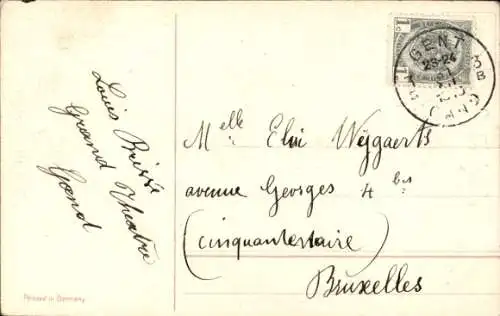 Louis Brisse
Grand Théâtre
Gand
Melle Elvi Weygaerts
avenue Georges 4 bis
(cinquantenaire)
Bruxelles
GENT 3B
23-24
GAND
Printed in Germany